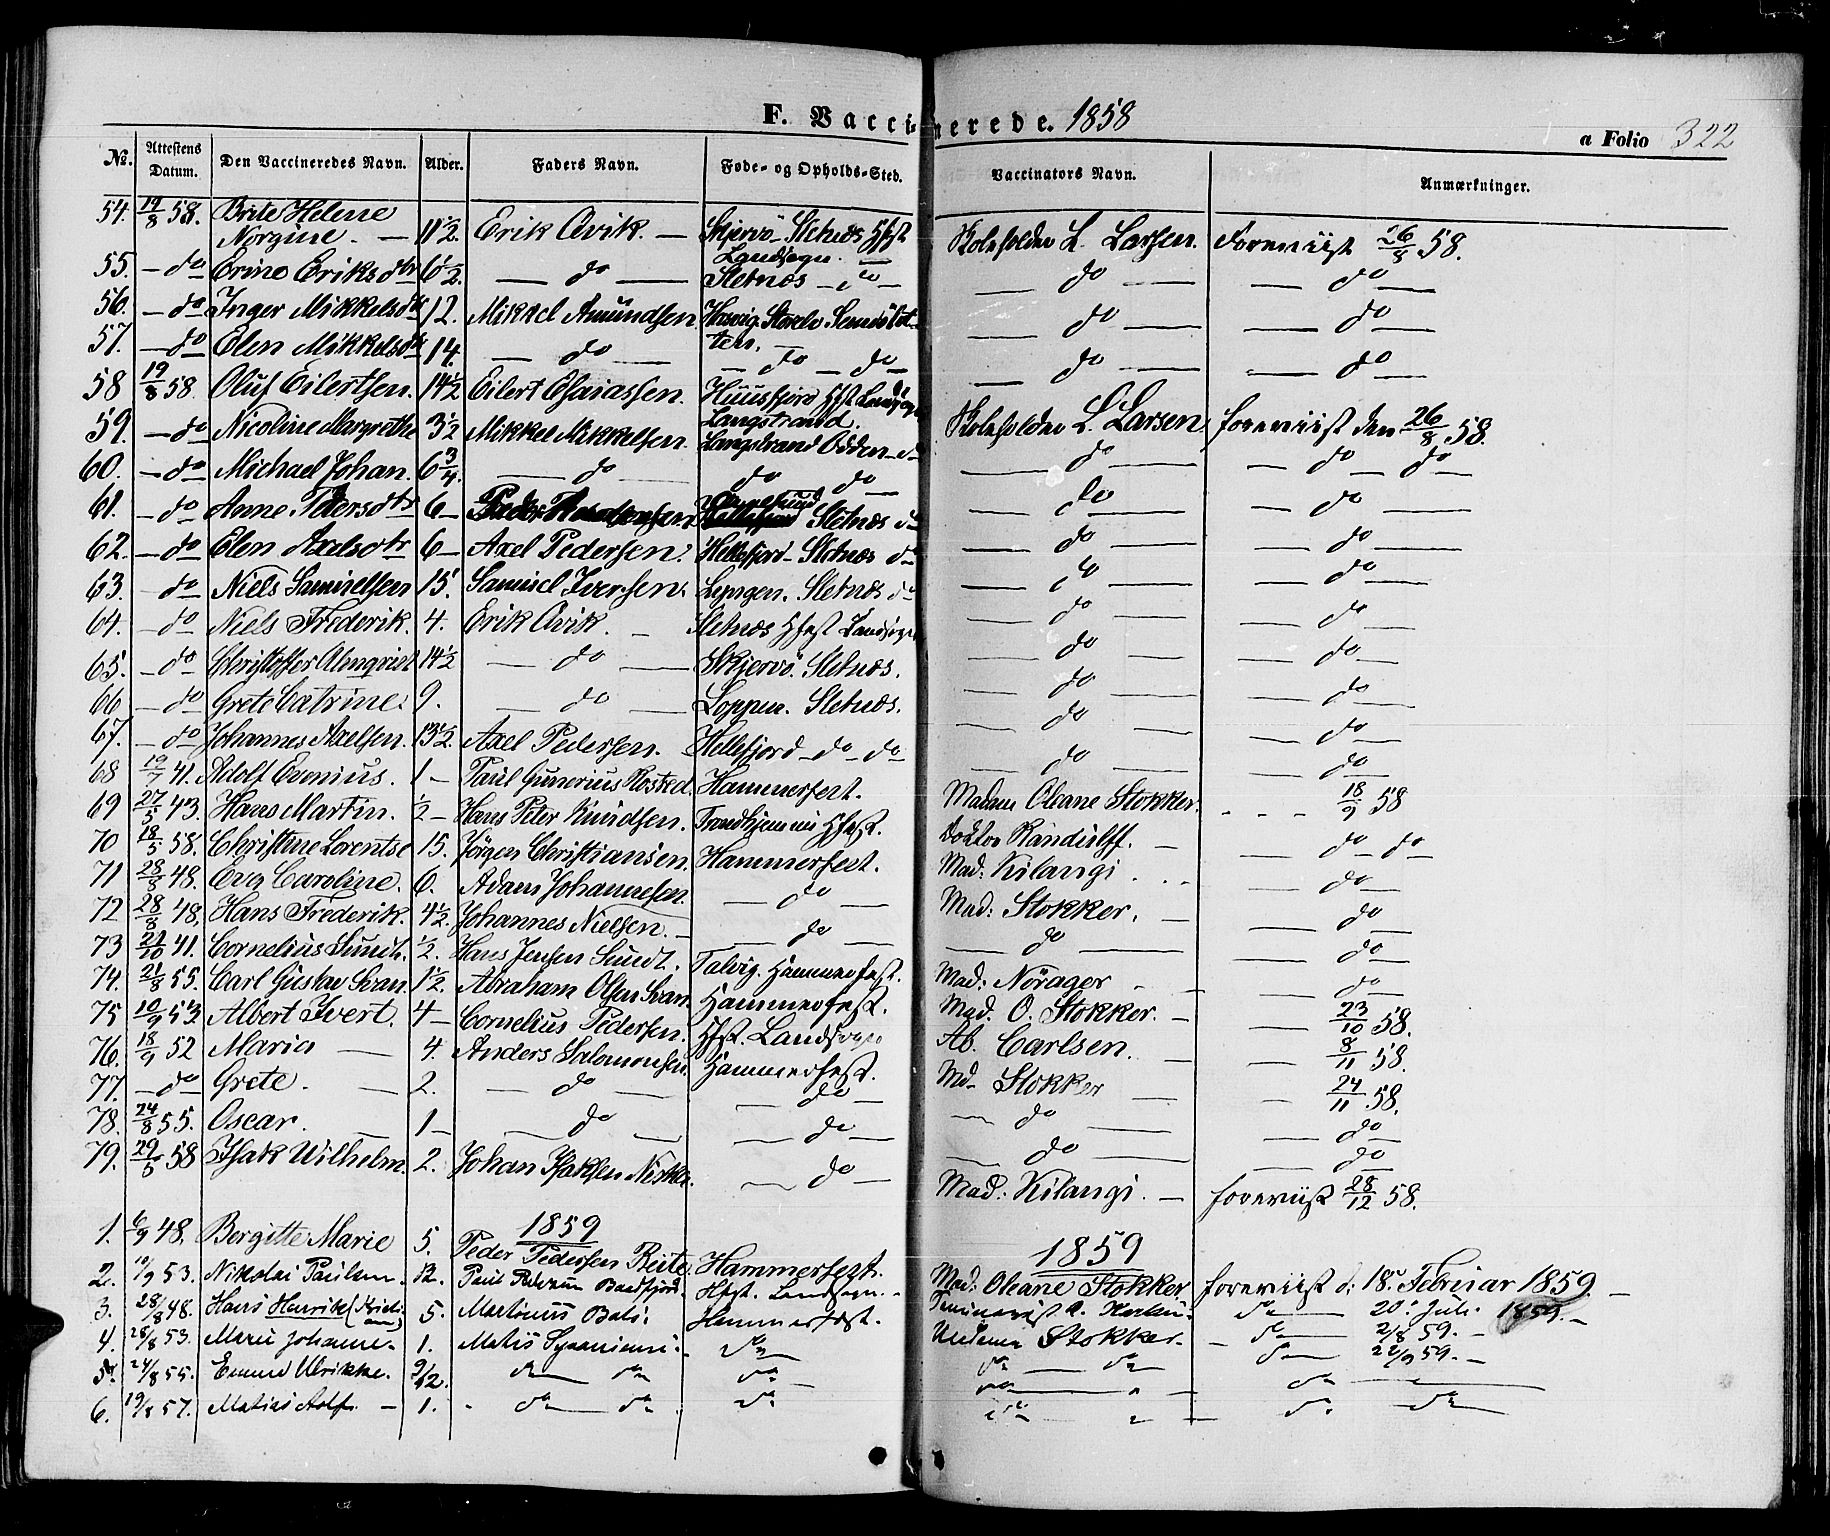 F. Vaccinerede. 1858
a Folio 322
No. Attestens Datum. Den Vaccineredes Navn. Alder. Faders Navn. Føde- og Opholds-Sted. Vaccinators Navn. Anmærkninger.
54. 19/8 58. Brite Helene
Norgine. — 11 1/2. Erik Qvik. — Skjervö. Sletnæs Hfst L. Larsen. Foreviist 26/8 58.
Landsogn.
55. — do Erine Eriksdtr 6 1/2 — do — Sletnæs — do — — do — — do —
56. — do Inger Mikkelsdtr 12. Mikkel Amundsen — do — — do —
57. — do Elen Mikkelsdtr 14. — do — — do — do — do — — do —
58 19/8 58. Oluf Eilertsen. 14 1/2 Eilert Esaiassen. Landsogn
Langstrand.
59. — do Nicoline Margrethe 3 1/2 Mikkel Mikkelsen. Langstrand Odden — do L. Larsen foreviist den 26/8 58.
60. — do Michael Johan. 6 3/4. — do — do do — — do — — do — do —
61. — do Anne Pedersdtr 6 — Sletnæs do — do — — do —
62. — do Elen Axelsdtr 6 — Axel Pedersen. Hellefjord — Sletnæs do — do — — do —
63. — do Niels Samuelsen 15. Samuel Iversen. Lyngen. Sletnæs do — do — — do —
64. — do Niels Frederik. 4. Erik Qvik. — Sletnæs Hfest Landsogn — do — — do —
65. — do Christoffer Almqvist 14 1/2 — do — Skjervö. Sletnæs. — do — — do —
66 — do Grete Catrine. 9. — do — Loppen. Sletnæs. — do — — do —
67. — do Johannes Axelsen. 13 1/2. Axel Pedersen. Hellefjord — do — do — do — — do —
68 19/7 41. Adolf Evenius. 1 — Paul Gunerius Hammerfest. Madam Oleane Stokker. 18/9 58
69 27/5 43. Hans Martin. 1/2 — Hans Peter Knudsen. Hfest. Doktor Randulff. — — do — do —
70 18/5 58. Christine Lorentse 15. Jörgen Christiansen. Hammerfest. Mad: Kilangi — do —
71 28/8 48. Eva Caroline. 6. Adam Johannesen. — do — Mad: Stokker. — — do —
72 28/8 48, Hans Frederik. 4 1/2. Johannes Nielsen. — — do — — do — — do —
73 21/10 41. Cornelius Sundt. 1/2. Hans Jensen Sundt. Talvig. Hammerfest. Mad: Nörager — do —
74. 21/8 55. Carl Gustav Svan. 1 1/2. Abraham Olsen Svan. Hammerfest. Mad. O. Stokker. — — 23/10 58.
75 10/9 53 Albert Ivert. 4 — Cornelius Pedersen. Hfst. Landsogn Ab. Carlsen. — 8/11 58.
76. 18/9 52 Maria — 4. Anders Salomonsen. Hammerfest. Md— Stokker — — 24/11 58.
77. — do Grete. — 2. — do — — do — — do — — do —
78. 24/8 55. Oscar. — 1 — — do — — do — — do — — do —
79. 29/5 58 Isak Wilhelm. 2. Johan Isaksen — do — Mad: Kilangi. — foreviist 28/12 58.
1859 1859
1. 6/9 48. Bergitte Marie 5. Peder Pedersen Reite Hammerfest. Mad: Oleane Stokker foreviist d: 18. Februar 1859. —
2. 10/9 53. Nikolai Paulsen. 12. Paul Hfst. Landsogn. — do — 20. Juli 1859. —
3. 28/8 48. Hans Henrik 5. Martinus Hammerfest. Stokker — do — 2/8 59. —
4. 28/8 53. Marie Johanne 1. Matis — do — — do — do — do — 22/9 59. —
5. 24/8 55. Emma Ulrikke. 9/12. — do do — do — — do — — do —
6. 19/8 57. Matias Adolf. — 1. — do do — do — — do — — do do —